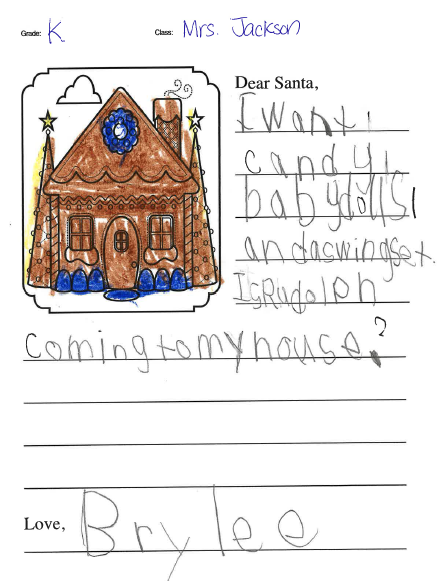 Grade: K Class: Mrs. Jackson
Dear Santa,
I want,
candy,
babydolls,
andaswingset.
IsRudolph
comingtomyhouse?
Love, Brylee